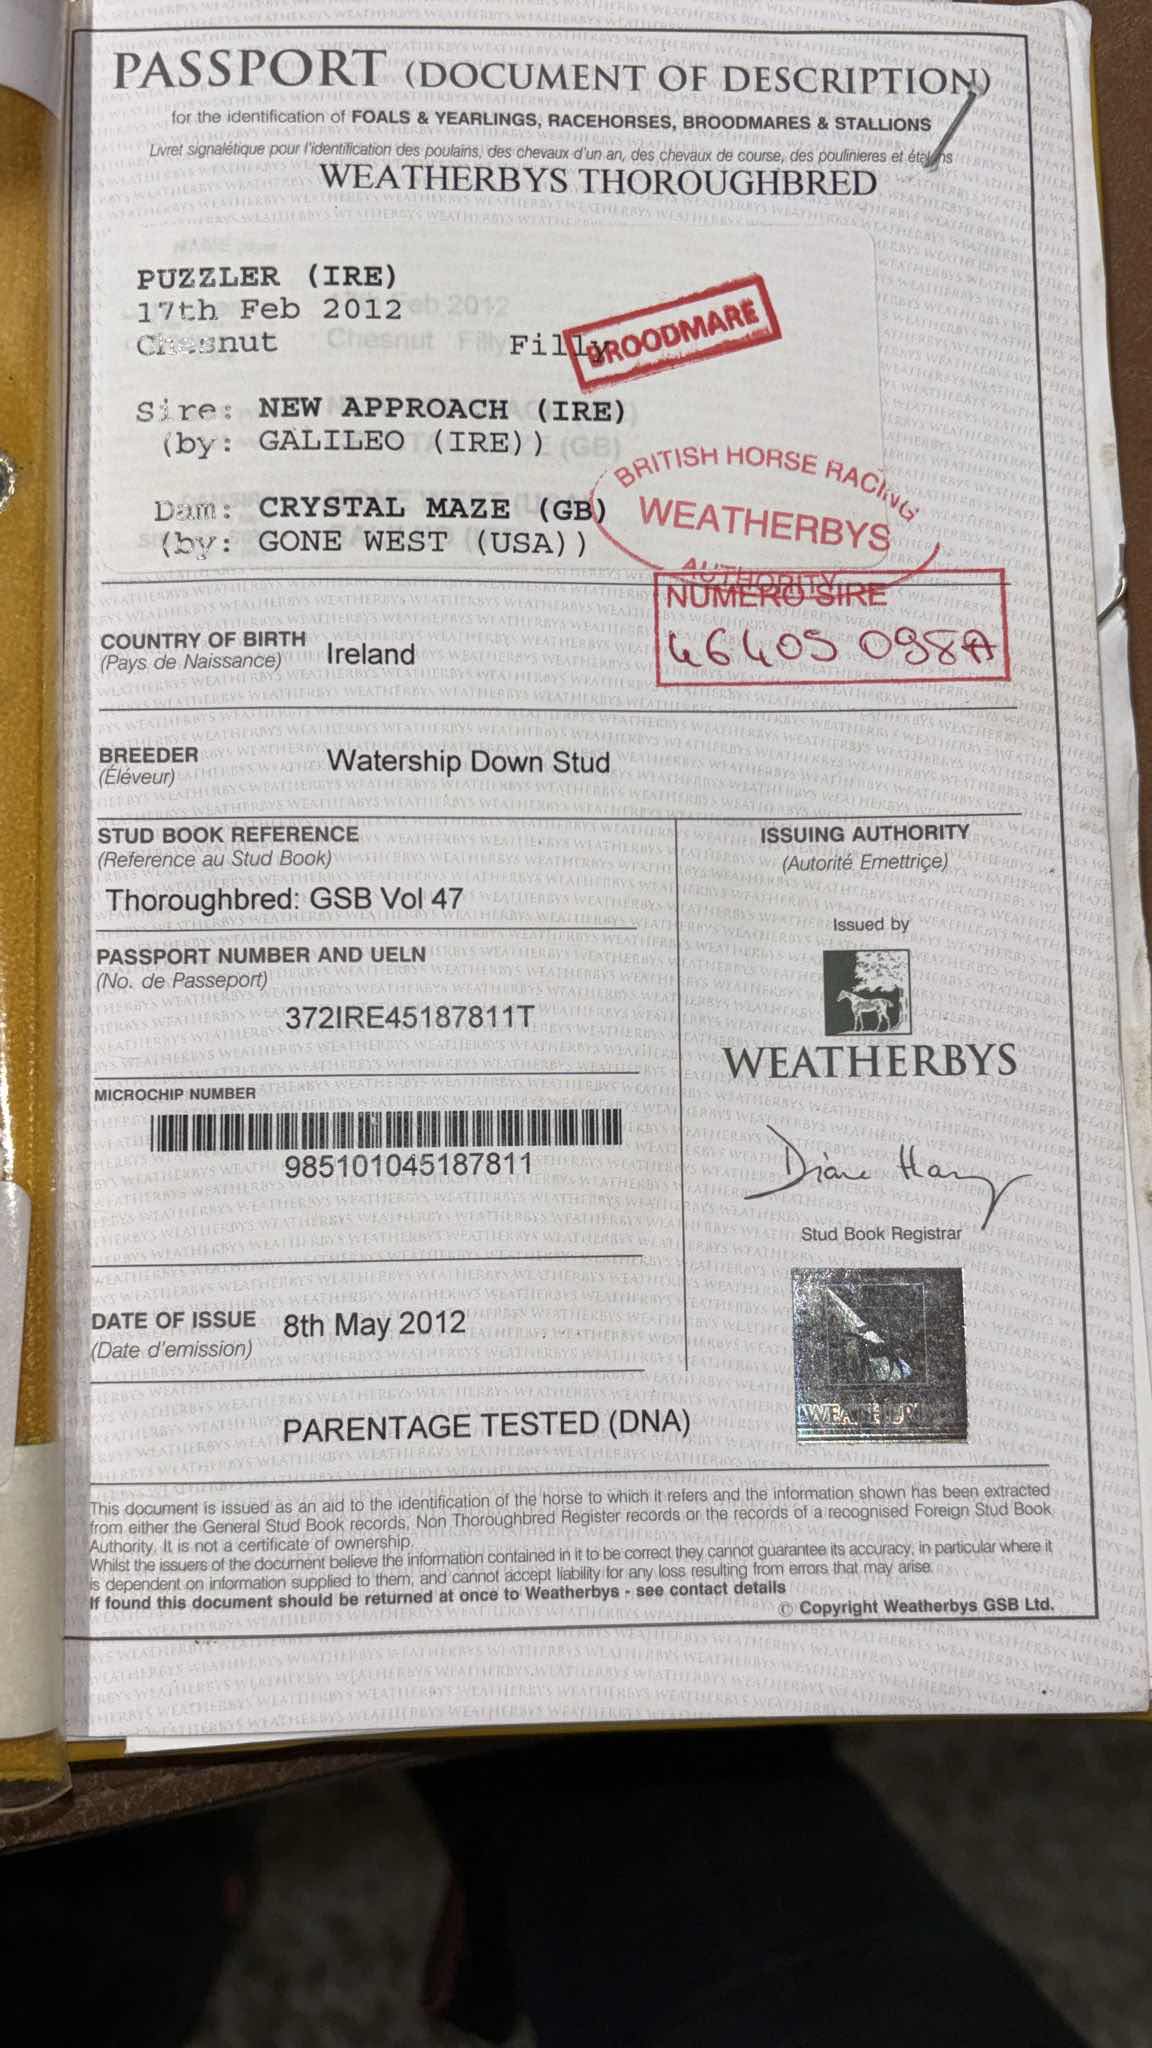 PASSPORT (DOCUMENT OF DESCRIPTION)
for the identification of FOALS & YEARLINGS, RACEHORSES, BROODMARES & STALLIONS
Livret signalétique pour l'identification des poulains, des chevaux d'un an, des chevaux de course, des poulinieres et étalons
WEATHERBYS THOROUGHBRED
PUZZLER (IRE)
17th Feb 2012
Chesnut Filly
BROODMARE
Sire: NEW APPROACH (IRE)
(by: GALILEO (IRE))
Dam: CRYSTAL MAZE (GB)
(by: GONE WEST (USA))
BRITISH HORSE RACING
WEATHERBYS
AUTHORITY
NUMERO SIRE
46405098A
COUNTRY OF BIRTH
(Pays de Naissance)
Ireland
BREEDER
(Éléveur)
Watership Down Stud
STUD BOOK REFERENCE
(Reference au Stud Book)
Thoroughbred: GSB Vol 47
PASSPORT NUMBER AND UELN
(No. de Passeport)
372IRE45187811T
MICROCHIP NUMBER
985101045187811
DATE OF ISSUE
(Date d'emission)
8th May 2012
PARENTAGE TESTED (DNA)
ISSUING AUTHORITY
(Autorité Emettriçe)
Issued by
WEATHERBYS
Stud Book Registrar
This document is issued as an aid to the identification of the horse to which it refers and the information shown has been extracted
from either the General Stud Book records, Non Thoroughbred Register records or the records of a recognised Foreign Stud Book
Authority. It is not a certificate of ownership.
Whilst the issuers of the document believe the information contained in it to be correct they cannot guarantee its accuracy, in particular where it
is dependent on information supplied to them, and cannot accept liability for any loss resulting from errors that may arise.
If found this document should be returned at once to Weatherbys - see contact details
© Copyright Weatherbys GSB Ltd.